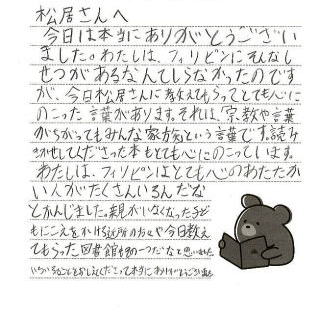 松居さんへ
今日は本当にありがとうござい
ました。わたしは、フィリピンにそんなし
せつがあるなんてしらなかったのです
が、今日松居さんに教えてもらってとても心に
のこった言葉があります。それは、宗教や言葉
がちがってもみんな家方矣という言葉です。読み
きかせしてくださった本もとても心にのこっています。
わたしは、フィリピンはとても心のあたたか
い人がたくさんいるんだな
とかんじました。親がいなくなった子ど
もにこえをかける近所の方々や今日教え
てもらった図書館もその一つだなと思いました。
いろいろなことをおしえてくださって本当にありがとうございました